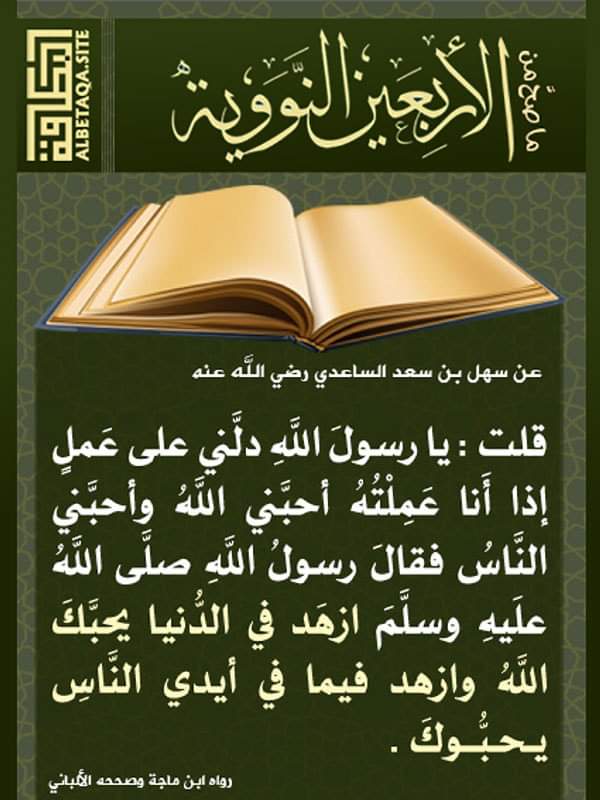 ما صح من
الأربعين النووية
البطاقة
ALBETAQA.SITE
عن سهل بن سعد الساعدي رضي اللَّه عنه
قلت : يا رسولَ اللَّهِ دلَّني على عَملٍ
إذا أَنا عَمِلْتُهُ أحبَّني اللَّهُ وأحبَّني
النَّاسُ فقالَ رسولُ اللَّهِ صلَّى اللَّهُ
علَيهِ وسلَّمَ ازهَد في الدُّنيا يحبَّكَ
اللَّهُ وازهد فيما في أيدي النَّاسِ
يـحـبُّـوكَ .
رواه ابن ماجة وصححه الألباني